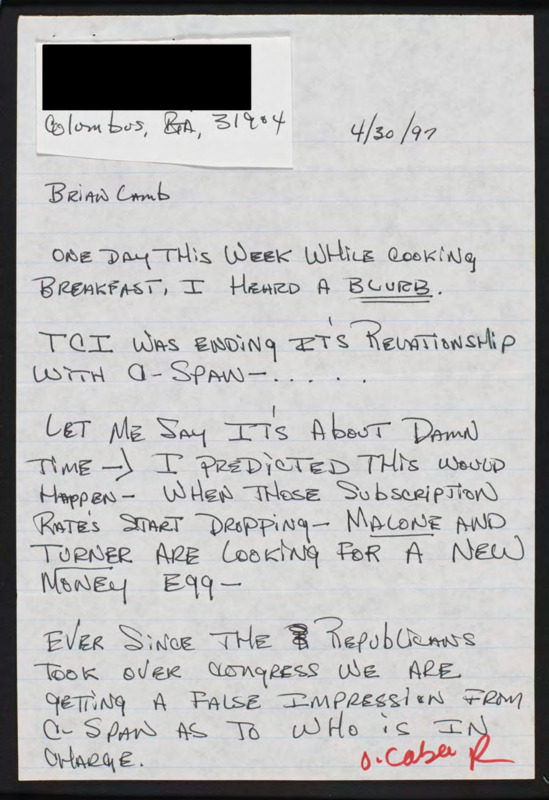 Columbus, GA, 31904
4/30/97
Brian Lamb
One day this week while cooking
breakfast, I heard a blurb.
TCI was ending it's relationship
with C-Span— . . . . .
Let me say it's about damn
time → I predicted this would
happen— when those subscription
rate's start dropping— Malone and
Turner are looking for a new
money egg—
Ever since the Republicans
took over Congress we are
getting a false impression from
C-Span as to who is in
charge.